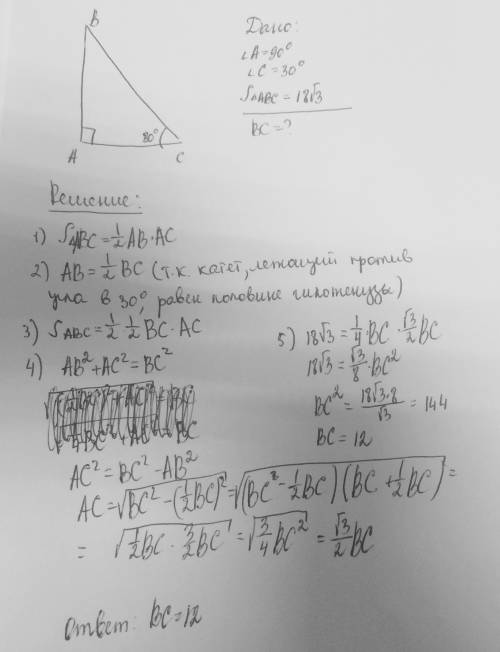 B
A
80°
C
Дано:
∠A=90°
∠C=30°
S△ABC=18√3
BC=?
Решение:
1) S△ABC=1/2 AB·AC
2) AB=1/2 BC (т.к. катет, лежащий против
угла в 30°, равен половине гипотенузы)
3) SABC=1/2·1/2 BC·AC
4) AB²+AC²=BC²
AC²=BC²-AB²
AC=√(BC²-(1/2BC)²)=√((BC²-1/2BC)(BC+1/2BC))=
=√(1/2BC·3/2BC)=√(3/4BC²)=√3/2 BC
5) 18√3=1/4·BC·√3/2 BC
18√3=√3/8·BC²
BC²=18√3·8/√3=144
BC=12
Ответ: BC=12